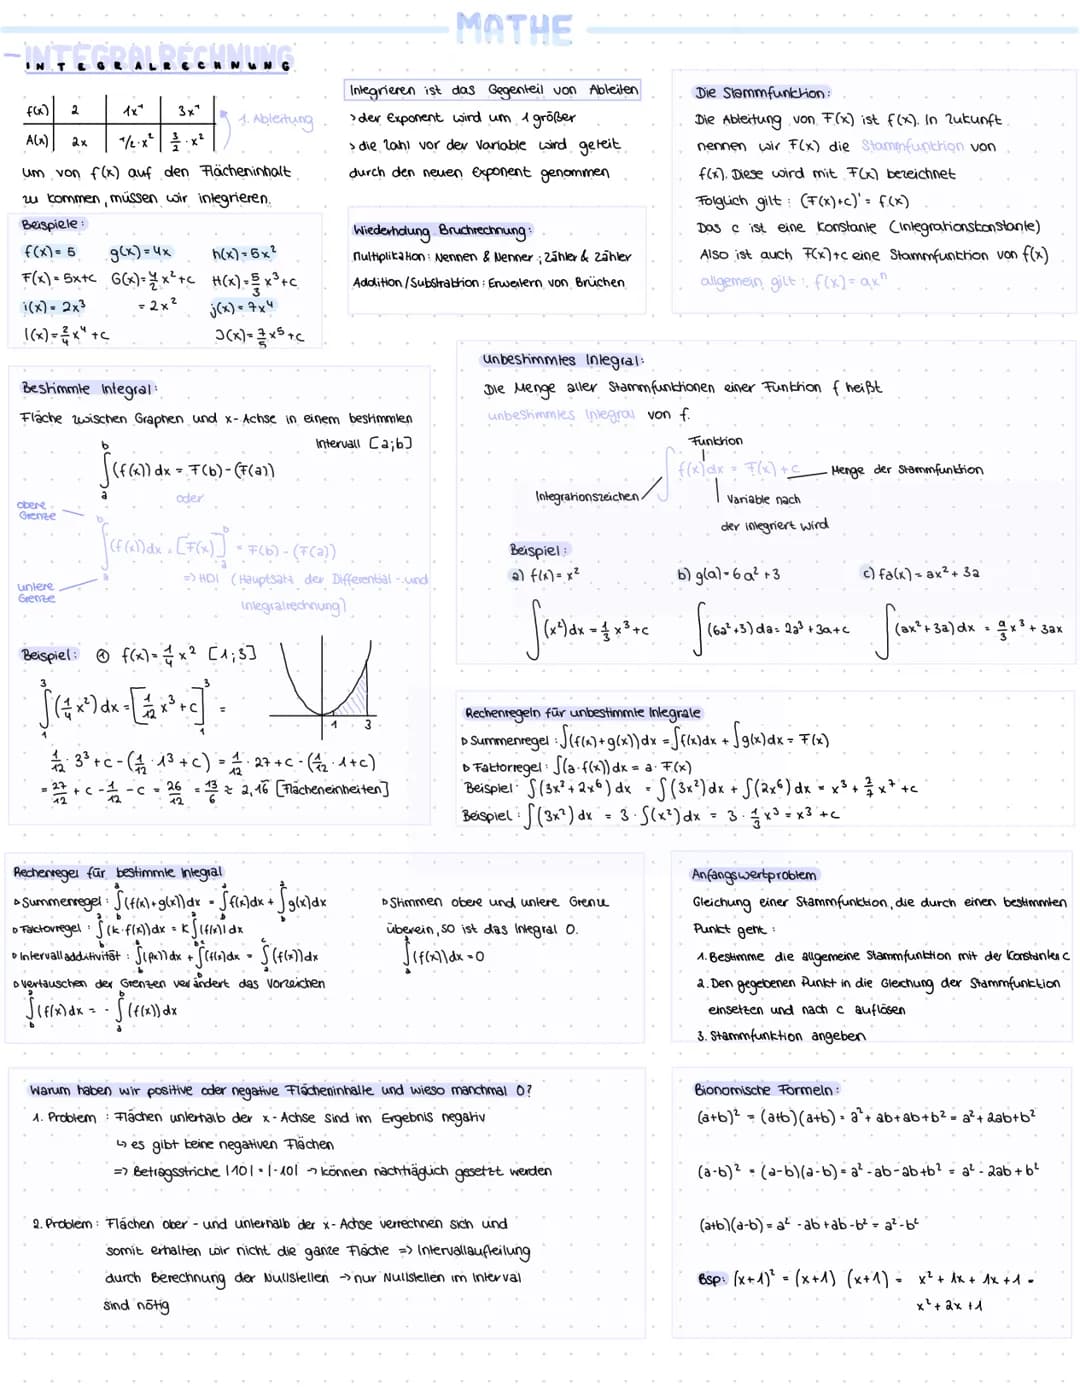 MATHE
- INTEGRALRECHNUNG
f(x) | 2 | 1x¹ | 3x¹
A(x) | 2x | 1/2·x² | 3/2·x²
1. Ableitung
um von f(x) auf den Flächeninhalt
zu kommen, müssen wir integrieren.
Beispiele:
f(x) = 5 g(x) = 4x h(x) = 5x²
F(x) = 5x+c G(x) = 4/2 x²+c H(x) = 5/3 x³+c
= 2x²
i(x) = 2x³ j(x) = 7x⁴
I(x) = 2/4 x⁴ +c J(x) = 7/5 x⁵ +c
Integrieren ist das Gegenteil von Ableiten
> der Exponent wird um 1 größer
> die Zahl vor der Variable wird geteit
durch den neuen Exponent genommen
Wiederholung Bruchrechnung:
Multiplikation: Nennen & Nenner ; Zähler & Zähler
Addition / Substraktion: Erweitern von Brüchen
Die Stammfunktion:
Die Ableitung von F(x) ist f(x). In Zukunft
nennen wir F(x) die Stammfunktion von
f(x). Diese wird mit F(x) bezeichnet
Folglich gilt: (F(x)+c)' = f(x)
Das c ist eine Konstante (Integrationskonstante)
Also ist auch F(x)+c eine Stammfunktion von f(x)
allgemein gilt: f(x) = axⁿ
Bestimmte Integral:
Fläche zwischen Graphen und x-Achse in einem bestimmten
Intervall [a;b]
∫ₐᵇ (f(x)) dx = F(b) - (F(a))
oder
obere Grenze
∫ₐᵇ (f(x)) dx = [F(x)]ₐᵇ = F(b) - (F(a))
untere Grenze
=> HDI (Hauptsatz der Differential- und
Integralrechnung)
Beispiel: ① f(x) = 1/4 x² [1;3]
∫₁³ (1/4 x²) dx = [1/12 x³ + c]₁³ =
1 3
1/12 · 3³ + c - (1/12 · 1³ + c) = 1/12 · 27 + c - (1/12 · 1 + c)
= 27/12 + c - 1/12 - c = 26/12 = 13/6 ≈ 2,16 [Flächeneinheiten]
unbestimmtes Integral:
Die Menge aller Stammfunktionen einer Funktion f heißt
unbestimmtes Integral von f.
Funktion
∫ f(x) dx = F(x) + c
Menge der Stammfunktion
Integrationszeichen
Variable nach
der integriert wird
Beispiel:
a) f(x) = x² b) g(a) = 6a² + 3 c) fa(x) = ax² + 3a
∫(x²) dx = 1/3 x³ + c ∫(6a² + 3) da = 2a³ + 3a + c ∫(ax² + 3a) dx = a/3 x³ + 3ax
Rechenregeln für unbestimmte Integrale
▹ Summenregel: ∫(f(x)+g(x)) dx = ∫f(x)dx + ∫g(x)dx = F(x)
▹ Faktorregel: ∫(a·f(x)) dx = a·F(x)
Beispiel: ∫(3x² + 2x⁶) dx = ∫(3x²) dx + ∫(2x⁶) dx = x³ + 2/7 x⁷ + c
Beispiel: ∫(3x²) dx = 3·∫(x²) dx = 3·1/3 x³ = x³ + c
Rechenregel für bestimmte Integral
▹ Summenregel: ∫(f(x)+g(x)) dx = ∫f(x)dx + ∫g(x)dx
▹ Faktorregel: ∫(k·f(x)) dx = k∫(f(x)) dx
▹ Intervalladditivität: ∫(f(x)) dx + ∫(f(x)) dx = ∫(f(x)) dx
▹ vertauschen der Grenzen verändert das Vorzeichen
∫(f(x) dx = - ∫(f(x)) dx
▹ Stimmen obere und untere Grenze
überein, so ist das Integral 0.
∫ₐᵃ (f(x)) dx = 0
Anfangswertproblem
Gleichung einer Stammfunktion, die durch einen bestimmten
Punkt geht:
1. Bestimme die allgemeine Stammfunktion mit der Konstanten c
2. Den gegebenen Punkt in die Gleichung der Stammfunktion
einsetzen und nach c auflösen
3. Stammfunktion angeben
Warum haben wir positive oder negative Flächeninhalte und wieso manchmal 0?
1. Problem : Flächen unterhalb der x-Achse sind im Ergebnis negativ
↳ es gibt keine negativen Flächen
=> Betragsstriche |10| = |-10| → können nachträglich gesetzt werden
2. Problem: Flächen ober- und unterhalb der x-Achse verrechnen sich und
somit erhalten wir nicht die ganze Fläche => Intervallaufteilung
durch Berechnung der Nullstellen → nur Nullstellen im Interval
sind nötig
Bionomische Formeln:
(a+b)² = (a+b)(a+b) = a² + ab + ab + b² = a² + 2ab + b²
(a-b)² = (a-b)(a-b) = a² - ab - ab + b² = a² - 2ab + b²
(a+b)(a-b) = a² - ab + ab - b² = a² - b²
Bsp: (x+1)² = (x+1) (x+1) = x² + 1x + 1x + 1 =
x² + 2x + 1